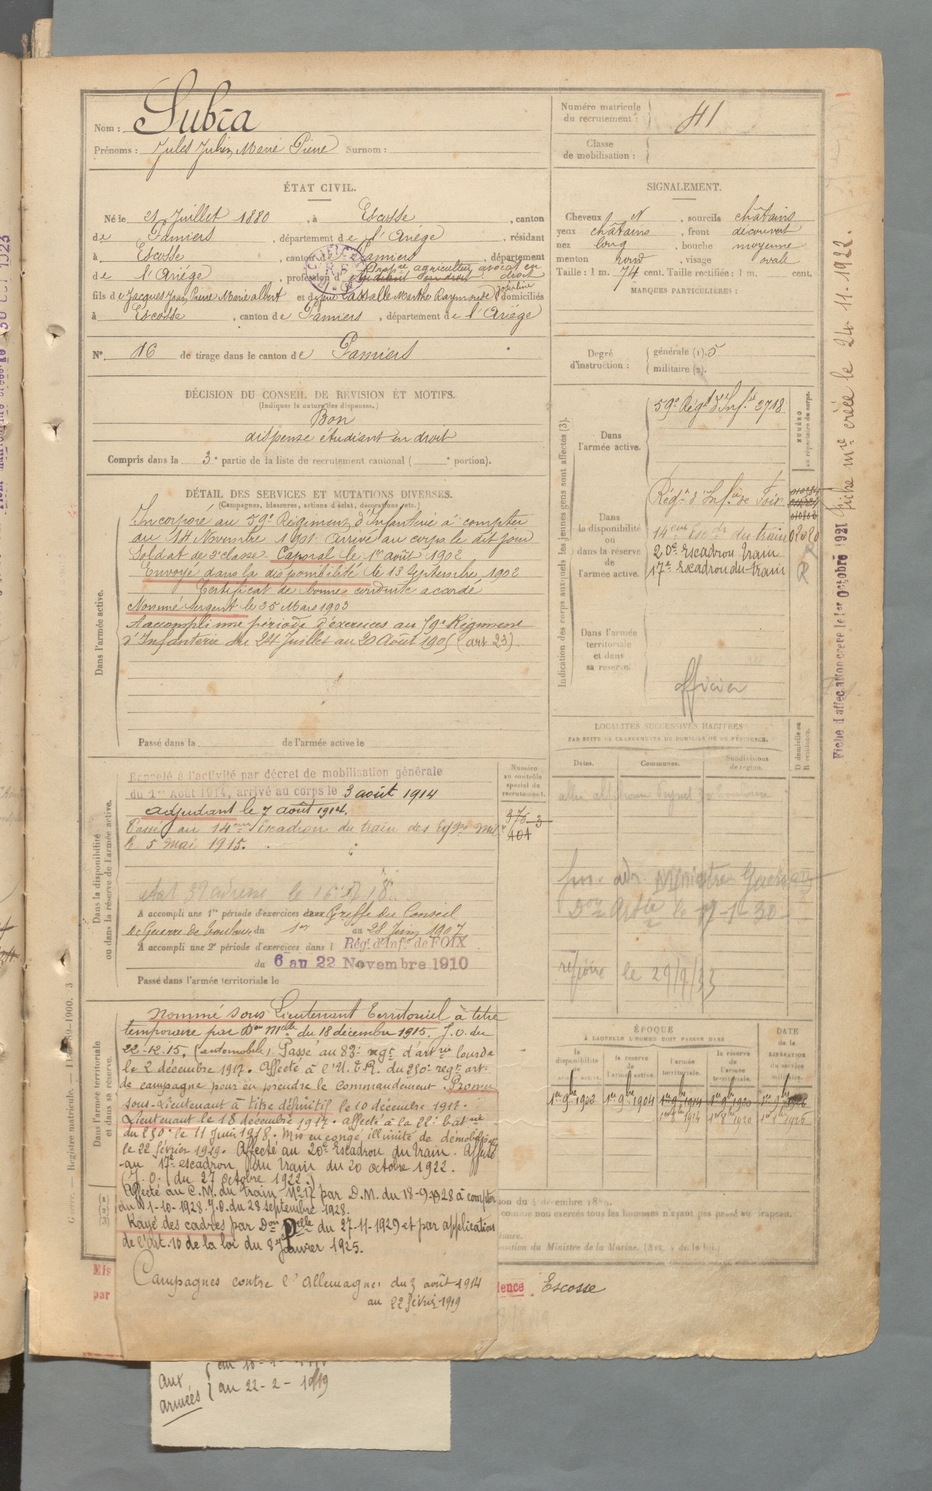 Nom : Subra
Prénoms : Jules Julien Marie Pierre Surnom :
ÉTAT CIVIL.
Né le 21 Juillet 1880, à Escosse, canton
de Pamiers, département de l'Ariège, résidant
à Escosse, canton de Pamiers, département
de l'Ariège, profession d agriculteur avocat en
droit
fils de Jacques Jean Pierre Marie Albert et de Lassalle Marthe Raymonde Joséphine domiciliés
à Escosse, canton de Pamiers, département de l'Ariège
N° 16 de tirage dans le canton de Pamiers
DÉCISION DU CONSEIL DE RÉVISION ET MOTIFS.
(Indiquer la nature des dispenses.)
Bon
dispense étudiant en droit
Compris dans la 3e partie de la liste du recrutement cantonal ( portion).
DÉTAIL DES SERVICES ET MUTATIONS DIVERSES.
(Campagnes, blessures, actions d'éclat, décorations, etc.)
Dans l'armée active.
Incorporé au 59e Régiment d'Infanterie à compter
du 14 Novembre 1901. Arrivé au corps le dit jour
Soldat de 2e classe. Caporal le 1er août 1902
Envoyé dans la disponibilité le 13 Septembre 1902
Certificat de bonne conduite accordé
Nommé Sergent le 25 Mars 1903
A accompli une période d'exercices au 59e Régiment
d'Infanterie du 24 Juillet au 20 Août 1905 (art 23)
Passé dans la de l'armée active le
Dans la disponibilité
ou dans la réserve de l'armée active.
Rappelé à l'activité par décret de mobilisation générale
du 1er Août 1914, arrivé au corps le 3 août 1914
adjudant le 7 août 1914.
Passé au 14ème Escadron du train des Eqges Mres
le 5 mai 1915.
A accompli une 1re période d'exercices dans Greffe du Conseil
de Guerre de Toulouse du 1er au 28 Juin 1907
A accompli une 2e période d'exercices dans l Rég. d'Infie de FOIX
du 6 au 22 Novembre 1910
Passé dans l'armée territoriale le
Numéro
au contrôle
spécial du
recrutement.
Dans l'armée territoriale
et dans sa réserve.
Nommé sous Lieutenant Territorial à titre
temporaire par Don Melle du 18 décembre 1915. J.O. du
22-12-15. (automobile). Passé au 83e rgt d'artie lourde
le 2 décembre 1917. Affecté à l'U. T. R. du 250e regt art.
de campagne pour en prendre le commandement. Promu
sous-Lieutenant à titre définitif le 10 décembre 1917.
Lieutenant le 18 décembre 1917. affecté à la 22e batrie
du 250e le 11 juin 1918. Mis en congé illimité de démobilisation
le 22 février 1919. Affecté au 20e Escadron du Train. Affecté
au 17e escadron du train du 20 octobre 1922.
(J.O. du 27 octobre 1922.)
Affecté au C.M. du train N°17 par D.M. du 18-9-1928 à compter
du 1-10-1928. J.O. du 28 septembre 1928.
Rayé des cadres par Don Pelle du 27-11-1929 et par application
de l'art. 10 de la loi du 8 Janvier 1925.
Campagnes contre l'Allemagne : du 3 août 1914
au 22 février 1919
aux
armées
au 22-2-1919
Numéro matricule
du recrutement : 41
Classe
de mobilisation :
SIGNALEMENT.
Cheveux et, sourcils châtains
yeux châtains, front découvert
nez long, bouche moyenne
menton rond, visage ovale
Taille : 1 m. 74 cent. Taille rectifiée : 1 m. cent.
MARQUES PARTICULIÈRES :
Degré
d'instruction :
générale (1). 5
militaire (2).
Indication des corps auxquels les jeunes gens sont affectés (3).
Dans
l'armée active.
59e Régt d'Infie 2718
Dans
la disponibilité
ou
dans la réserve
de
l'armée active.
Régt d'Infie de Foix
14ème Escon du train
20e Escadron Train
17e Escadron du train
Dans l'armée
territoriale
et dans
sa réserve.
officier
LOCALITÉS SUCCESSIVES HABITÉES
PAR SUITE DE CHANGEMENT DE DOMICILE OU DE RÉSIDENCE.
Dates.
Communes.
Subdivisions
de région.
D domicile ou
R résidence.
le 29/9/33
ÉPOQUE
À LAQUELLE L'HOMME DOIT PASSER DANS
la
disponibilité
la réserve
de l'armée
active.
l'armée
territoriale.
la réserve
de l'armée
territoriale.
DATE
DE LA
LIBÉRATION
du service
militaire.
1er 9bre 1902
1er 9bre 1904
1er 9bre 1914
1er 9bre 1920
Escosse
Fiche d'affectation créée le 1er Octobre 1921
fiche mre créée le 24-11-1922.